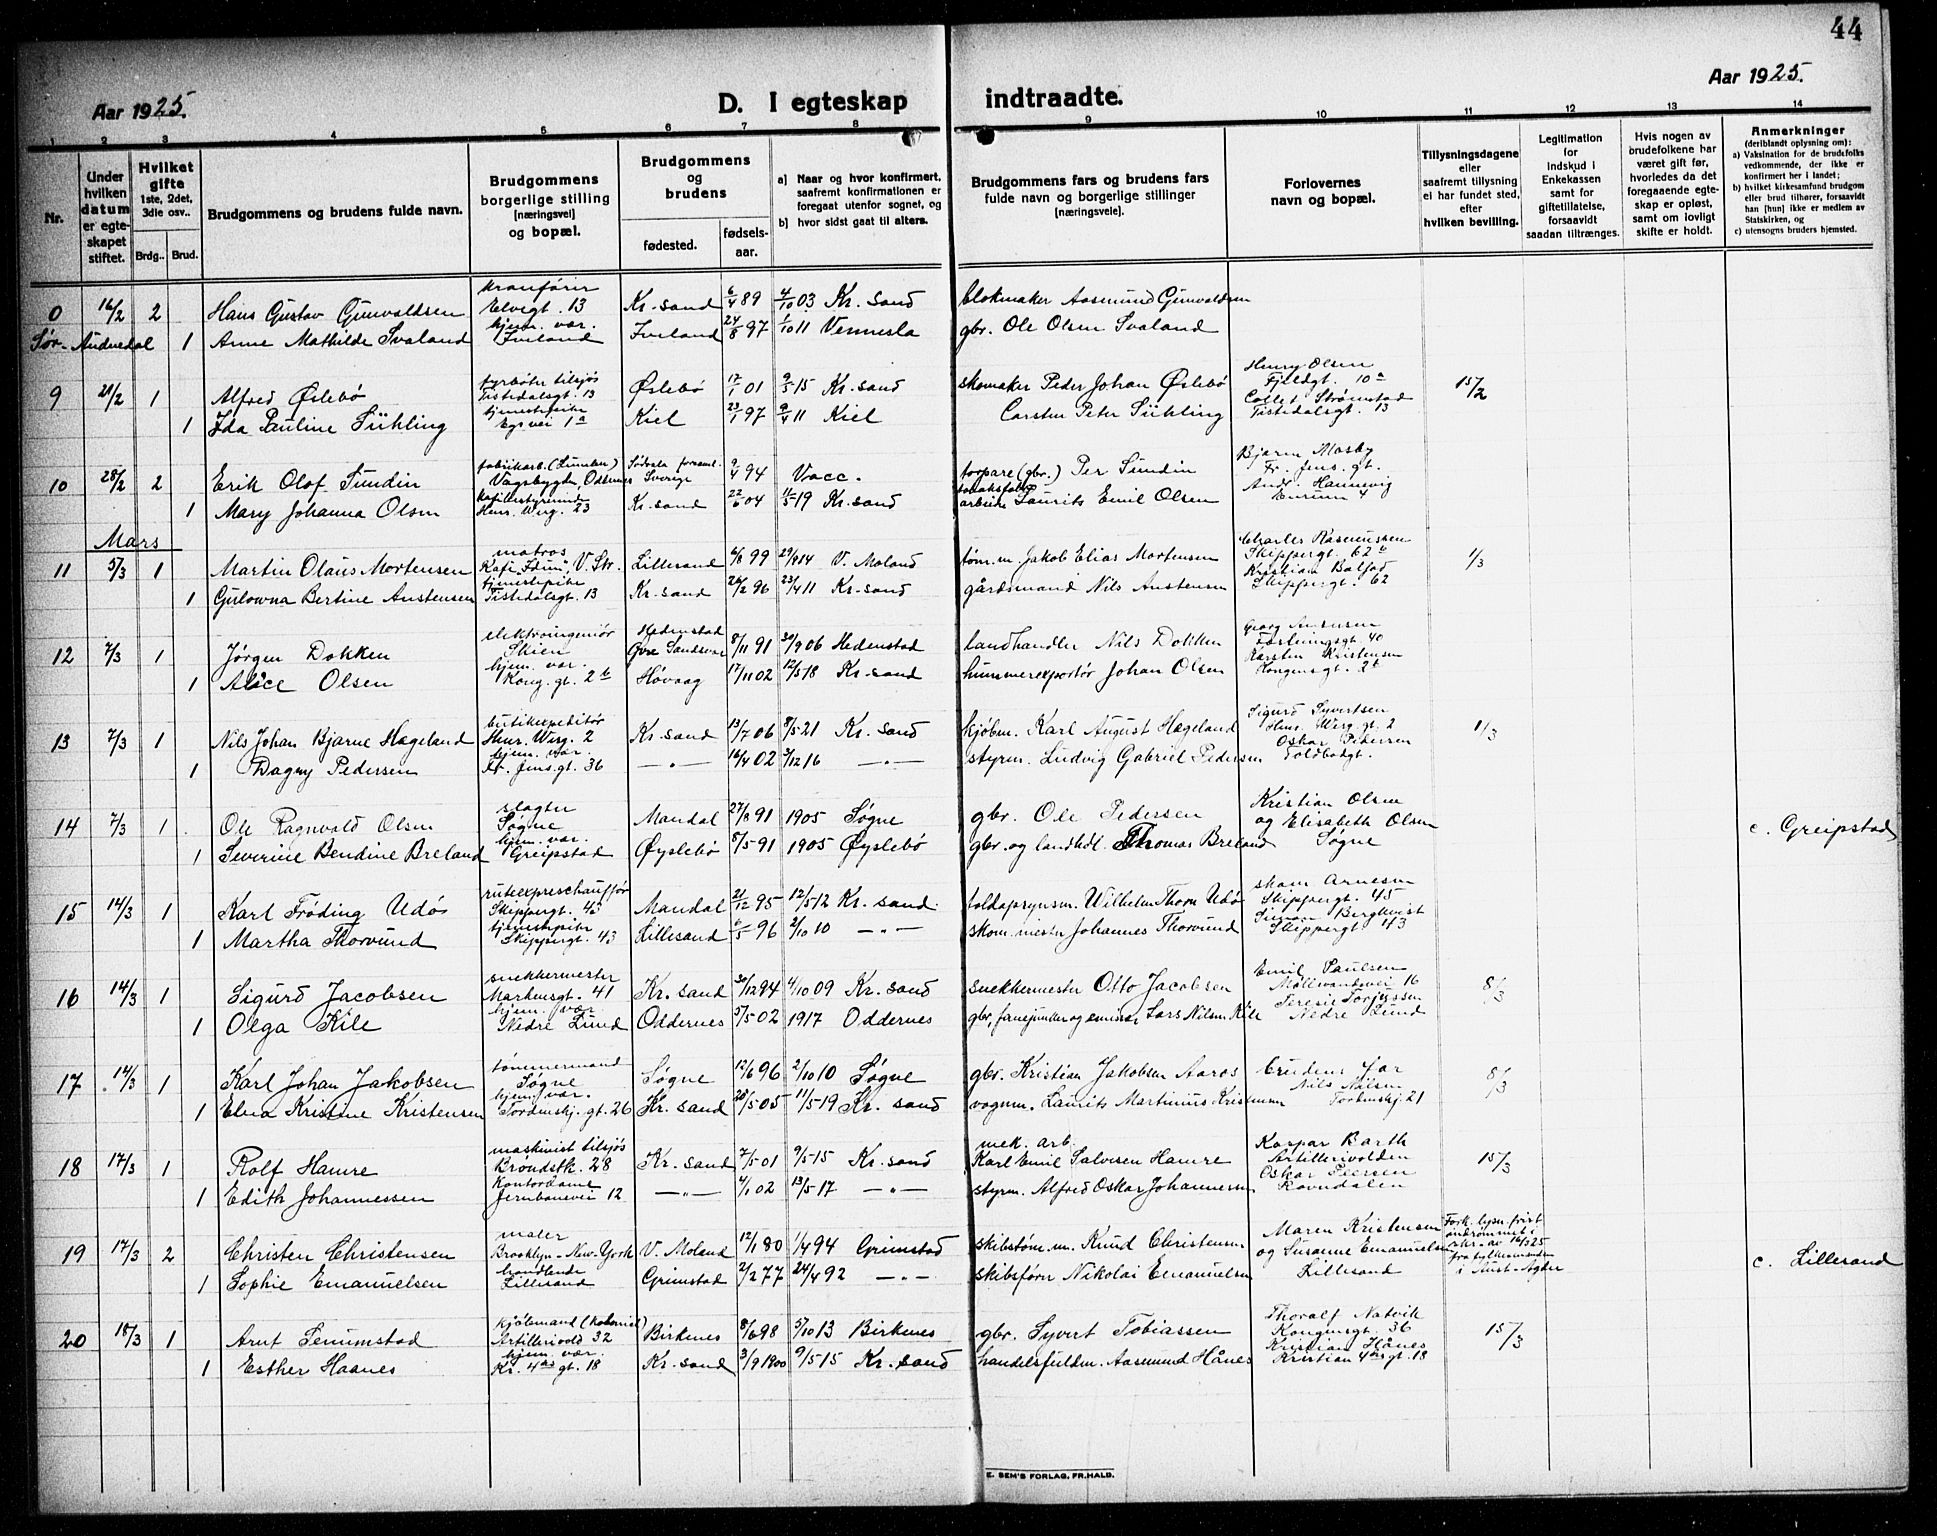 44
Aar 1925.
D. I egteskap
indtraadte.
Aar 1925.
1 2 3 4 5 6 7 8 9 10 11 12 13 14
Nr.
Under hvilken datum er egteskapet stiftet.
Hvilket gifte 1ste, 2det, 3die osv..
Brdg.. Brud.
Brudgommens og brudens fulde navn.
Brudgommens borgerlige stilling [næringsvei] og bopæl.
Brudgommens og brudens
fødested.
fødsels-aar.
a) Naar og hvor konfirmert, saafremt konfirmationen er foregaat utenfor sognet, og
b) hvor sidst gaat til alters.
Brudgommens fars og brudens fars fulde navn og borgerlige stillinger [næringsveie].
Forlovernes navn og bopæl.
Tillysningsdagene eller saafremt tillysning ei har fundet sted, efter hvilken bevilling.
Legitimation for indskud i Enkekassen samt for giftetillatelse, forsaavidt saadan tiltrænges.
Hvis nogen av brudefolkene har været gift før, hvorledes da det foregaaende egteskap er opløst, samt om lovligt skifte er holdt.
Anmerkninger
(deriblandt oplysning om):
a) Vaksination for de brudefolks vedkommende, der ikke er konfirmert her i landet;
b) hvilket kirkesamfund brudgom eller brud tilhører, forsaavidt han [hun] ikke er medlem av Statskirken, og
c) utensogns bruders hjemsted.
0 16/2 2 Hans Gustav Gunvaldsen kranfører Elvegt. 13 Kr.sand 6/4 89 4/10 03 Kr. sand blokmaker Aasmund Gunvaldsen
Sør-Audnedal 1 Anne Mathilde Ivaland hjem. var. Iveland Iveland 24/8 97 1/10 11 Vennesla gbr. Ole Olsen Ivaland
9 21/2 1 Alfred Øslebø fyrbøter tilsjøs Tistedalsgt. 13 Øslebø 12/1 01 9/5 15 Kr. sand skomaker Peder Johan Øslebø Henry Olsen Fjeldgt. 10a 15/2
1 Ida Pauline Sühling tjenestepike Egsvei 1a Kiel 23/1 97 9/4 11 Kiel Carsten Peter Sühling Collet Strømstad Tistedalsgt. 13
10 28/2 2 Erik Olof Sundin fabrikarb. (Lumber) Vaagsbygden, Oddernes Sverige 9/4 94 Vacc. torpare (gbr.) Per Sundin Bjarn Mosby Fr. Jens. gt.
1 Mary Johanna Olsen Henr. Werg. 23 Kr.sand 22/6 04 11/5 19 Kr. sand arbeider Laurits Emil Olsen Andr. Hannevig
Mars
11 5/3 1 Martin Olaus Mortensen matros Kafé "Idun", V. Str. Lillesand 6/8 99 29/9 14 V. Moland tøm.m. Jakob Elias Mortensen Charles Rasmussen Skippergt. 62b 1/3
1 Gulowna Bertine Austensen tjenestepike Tistedalsgt. 13 Kr.sand 26/2 96 23/4 11 Kr.sand gårdsmand Nils Austensen Kristian Balsad Skippergt. 62
12 7/3 1 Jørgen Dokken elektroingeniør Skien Hedenstad Øvre Sandsvær 8/11 91 30/9 06 Hedenstad landhandler Nils Dokken Georg Andersen Fæstningsgt. 40
1 Alice Olsen hjem. var. Kong. gt. 2b Høvaag 17/11 02 12/5 18 Kr. sand hummerexportør Johan Olsen Karsten Kristensen Kongensgt. 2b
13 7/3 1 Nils Johan Bjarne Hægeland butikexpeditør Henr. Werg. 2 Kr.sand 13/7 06 8/5 21 Kr. sand kjøbm. Karl August Hægeland Sigurd Syvertsen Henr. Werg. gt. 2 1/3
1 Dagny Pedersen hjem. var. Fr. Jens. gt. 36 —"— 16/4 02 3/12 16 —"— styrm. Ludvig Gabriel Pedersen Oskar Pedersen Toldbodgt.
14 7/3 1 Ole Ragnvald Olsen slagter Søgne Mandal 27/8 91 1905 Søgne gbr. Ole Pedersen Kristian Olsen og Elisabeth Olsen c. Greipstad
1 Severine Bendine Breland hjem. var. Greipstad Øyslebø 5/5 91 1905 Øyslebø gbr. og landhdl. Thomas Breland Søgne
15 14/3 1 Karl Frøding Udøs ruteexpreschauffør Skippergt. 43 Mandal 21/12 95 12/5 12 Kr. sand toldopsynsm. Wilhelm Thorn Udø skom Arnesen Skippergt. 45
1 Martha Thorvund tjenestepike Skippergt. 43 Lillesand 6/5 96 2/10 10 —"— skom. mester Johannes Thorvund Simon Berghvist Skippergt. 43
16 14/3 1 Sigurd Jacobsen snekkermester Markensgt. 41 Kr. sand 30/12 94 4/10 09 Kr. sand snekkermester Otto Jacobsen Emil Paulsen Møllevandsvei 16 8/3
1 Olga Kile hjem. var. Nedre Lund Oddernes 5/5 02 1917 Oddernes gbr, Lars Nilsen Kile Teresie Torjussen Nedre Lund
17 14/3 1 Karl Johan Jakobsen tømmermand Søgne Søgne 12/6 96 2/10 10 Søgne gbr. Kristian Jakobsen Aaros brudens far 8/3
1 Elna Kristine Kristensen hjem. var. Tordenskj. gt. 26 Kr. sand 28/5 05 11/5 19 Kr. sand vognm. Laurits Martinius Kristensen Nils Nilsen Tordenskj. 21
18 17/3 1 Rolf Hamre maskinist tilsjøs Krondstk. 28 Kr. sand 7/5 01 9/5 15 Kr. sand mek. arb. Karl Emil Salvesen Hamre Kaspar Barth Artillerivolden 15/3
1 Edith Johannessen Kontordame Jernbanevei 12 —"— 4/1 02 13/5 17 —"— styrm. Alfred Oskar Johannessen Oskar Ravndalen
19 17/3 2 Christen Christensen maler Brooklyn - New-York V. Moland 12/1 80 1/4 94 Grimstad skibstøm.m. Knud Christensen Maren Kristensen og Susanne Emanuelsen Fork. lysn. frist
1 Sophie Emanuelsen handlende Lillesand Grimstad 2/2 77 24/4 92 —"— skibsfører Nikolai Emanuelsen Lillesand fra fylkesmanden i Aust-Agder c. Lillesand
20 18/3 1 Arnt Senumstad kjøbmand (kolonial) Artillerivold 32 Birkenes 8/6 98 5/10 13 Birkenes gbr. Syvert Tobiassen Thoralf Natvik Kongensgt. 36 15/3
1 Esther Haanes hjem. var. Kr. 4des gt. 18 Kr. sand 3/9 1900 9/5 15 Kr. sand handelsfuldm. Aasmund Hånes Kristian Hånes Kristian 4des gt. 18
E. SEM'S FORLAG, FR.HALD.